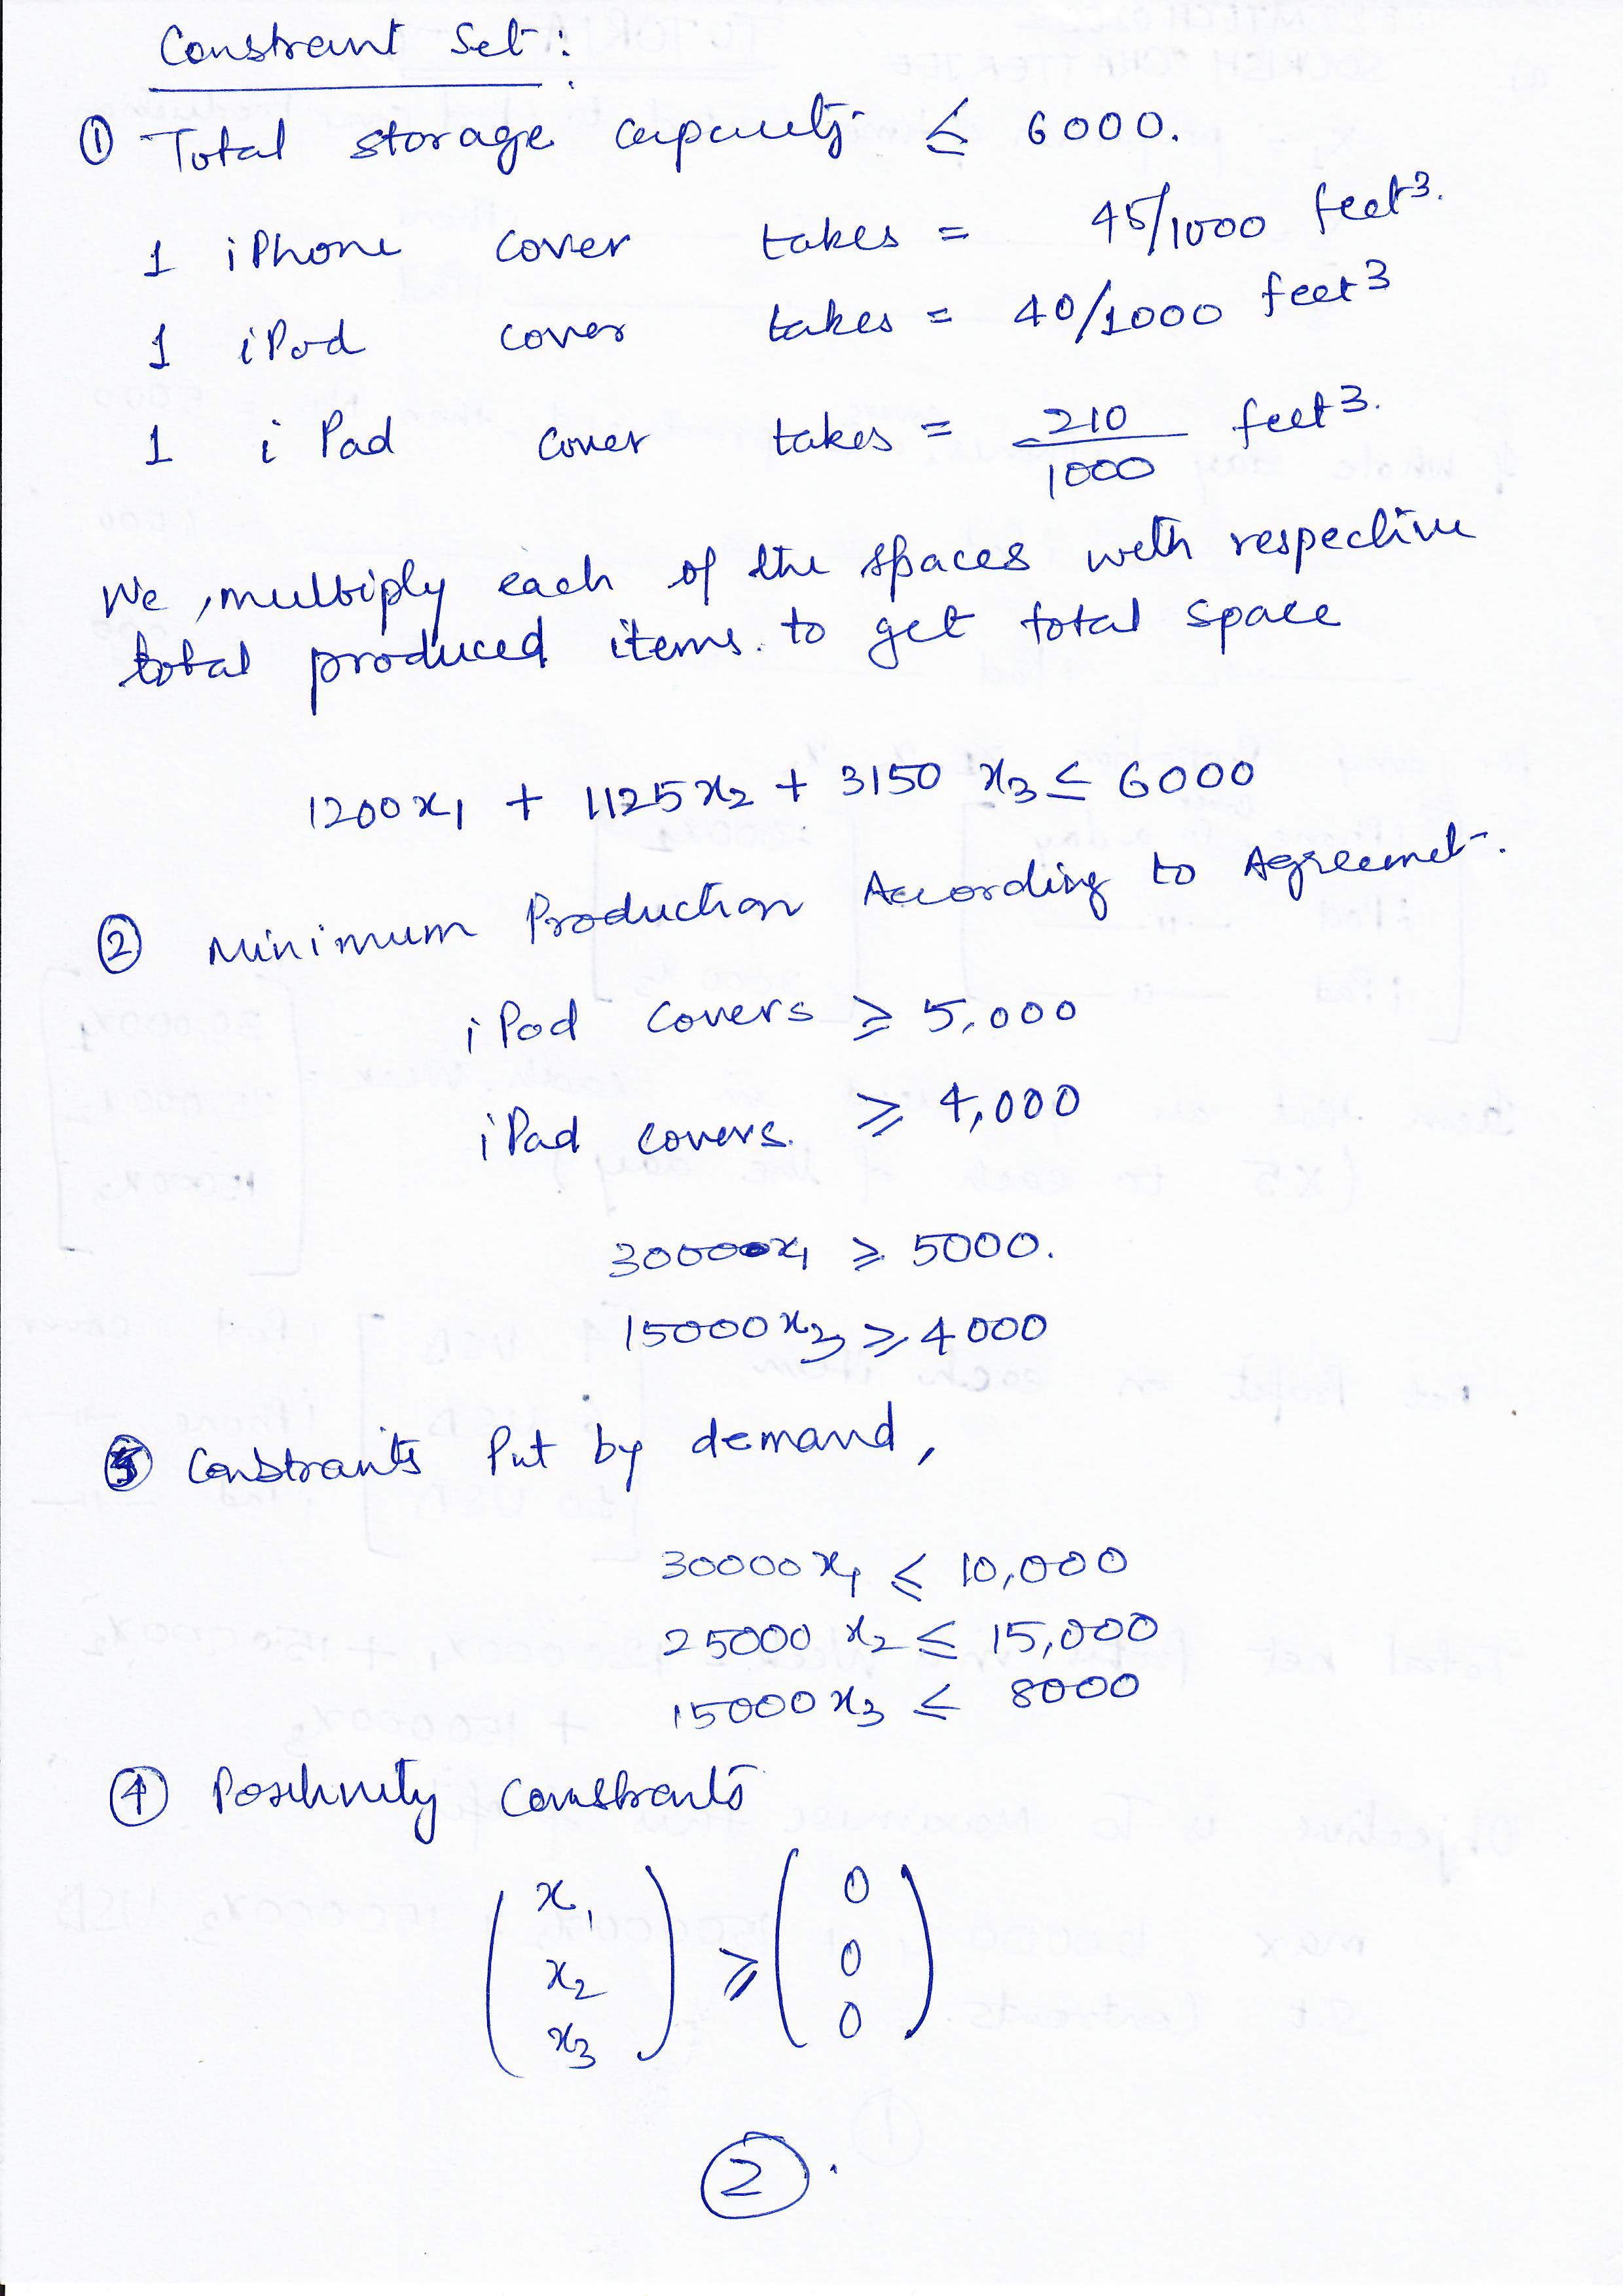 Constraint Set :
① Total storage capacity ≤ 6000.
1 iPhone cover takes = 45/1000 feet³.
1 iPod cover takes = 40/1000 feet³
1 iPad cover takes = 210/1000 feet³.
We, multiply each of the spaces with respective
total produced items. to get total space
1200x₁ + 1125x₂ + 3150 x₃ ≤ 6000
② Minimum Production According to Agreemet.
iPod covers ≥ 5,000
iPad covers. ≥ 4,000
30000x₁ ≥ 5000.
15000x₃ ≥ 4000
③ Constraints Put by demand,
30000x₁ ≤ 10,000
25000 x₂ ≤ 15,000
15000x₃ ≤ 8000
④ Positivity Constraints
(x₁ x₂ x₃) ≥ (0 0 0)
②.